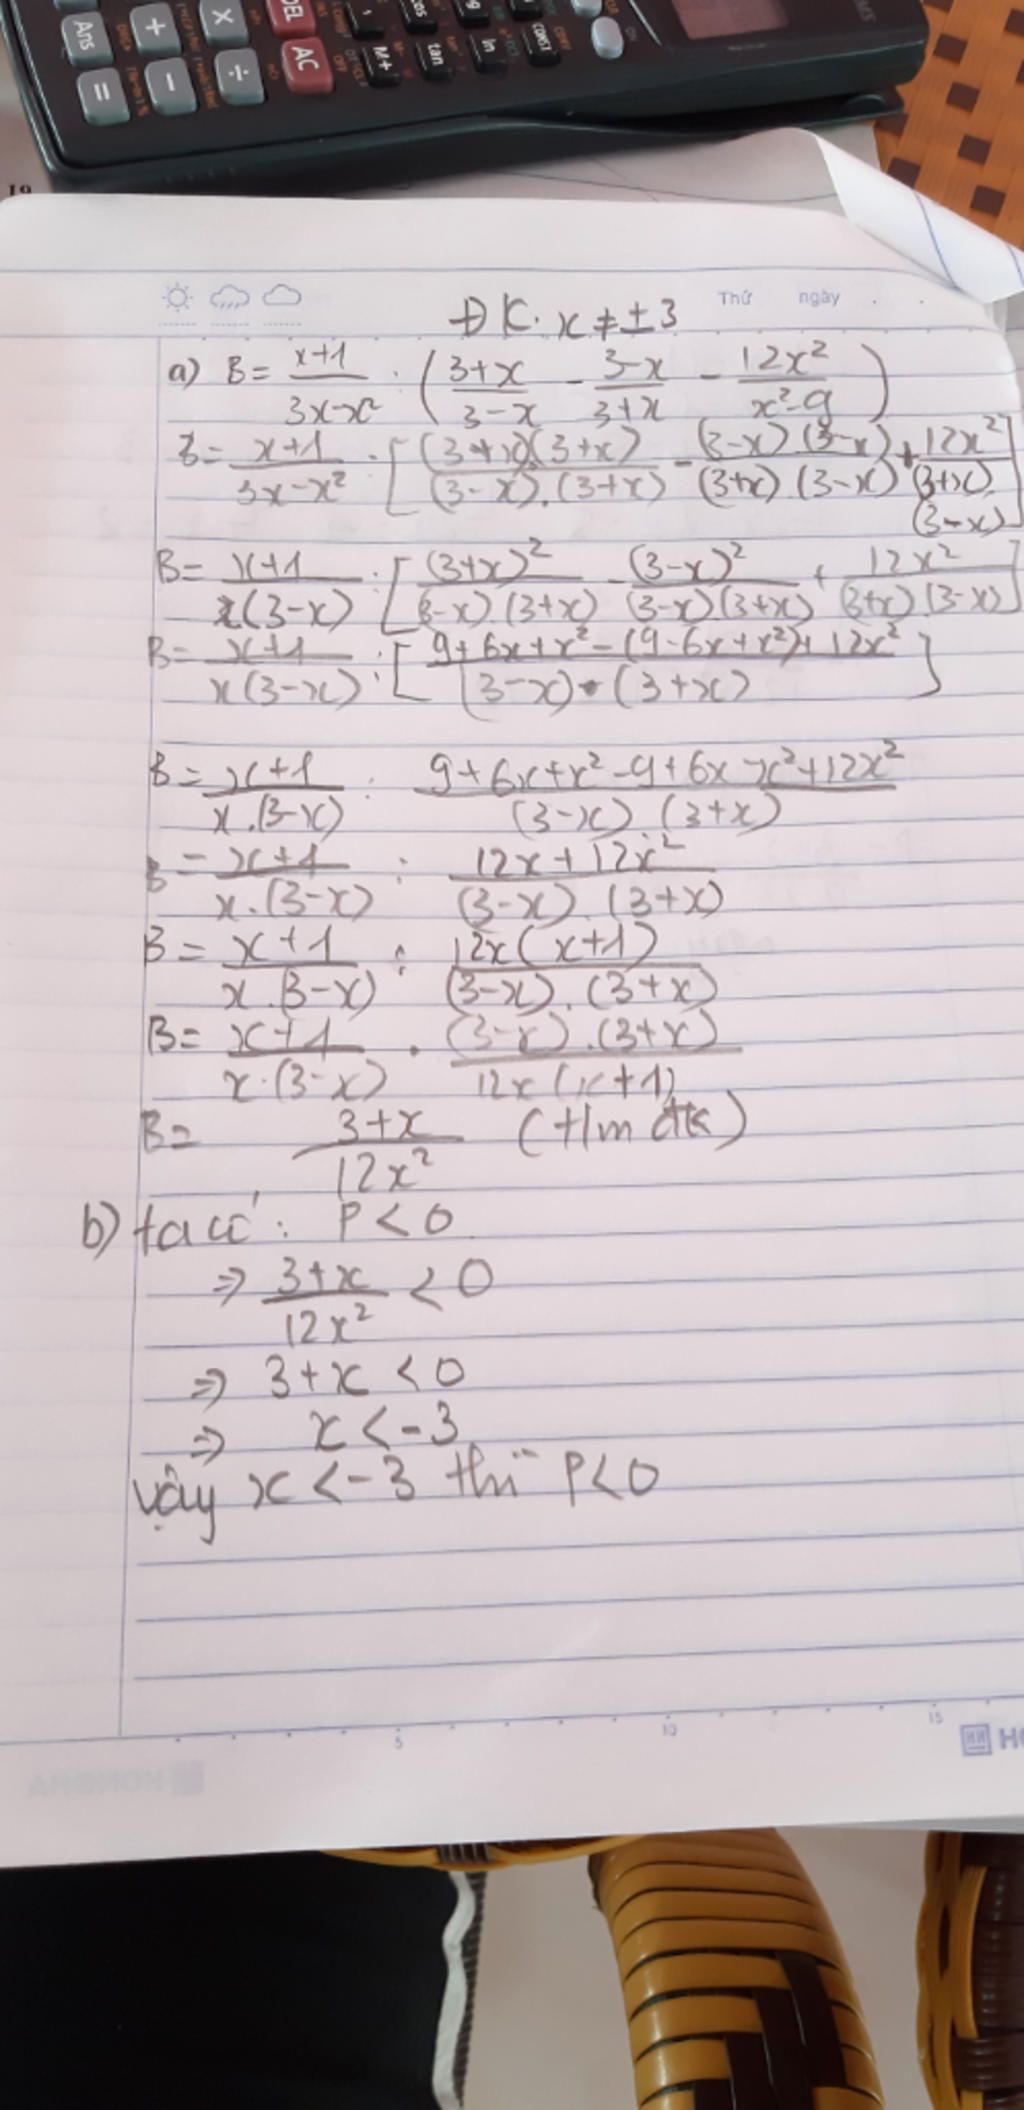 Ans + X DEL
= − ÷ AC M+ tan ln CONST
19
Thứ ngày
ĐK: x ≠ ±3
a) B = x+1 / 3x-x² : ( 3+x / 3-x - 3-x / 3+x - 12x² / x²-9 )
B = x+1 / 3x-x² : [ (3+x)(3+x) / (3-x).(3+x) - (3-x).(3-x) / (3+x).(3-x) + 12x² / (3+x).(3-x) ]
B = x+1 / x(3-x) : [ (3+x)² / (3-x).(3+x) - (3-x)² / (3-x)(3+x) + 12x² / (3+x)(3-x) ]
B = x+1 / x(3-x) : [ 9+6x+x²-(9-6x+x²)+12x² / (3-x).(3+x) ]
B = x+1 / x.(3-x) : 9+6x+x²-9+6x-x²+12x² / (3-x).(3+x)
B = x+1 / x.(3-x) : 12x+12x² / (3-x).(3+x)
B = x+1 / x.(3-x) : 12x(x+1) / (3-x).(3+x)
B = x+1 / x.(3-x) . (3-x).(3+x) / 12x(x+1)
B = 3+x / 12x² (t/m đk)
b) ta có: P < 0
=> 3+x / 12x² < 0
=> 3+x < 0
=> x < -3
vậy x < -3 thì P < 0
5 10 15